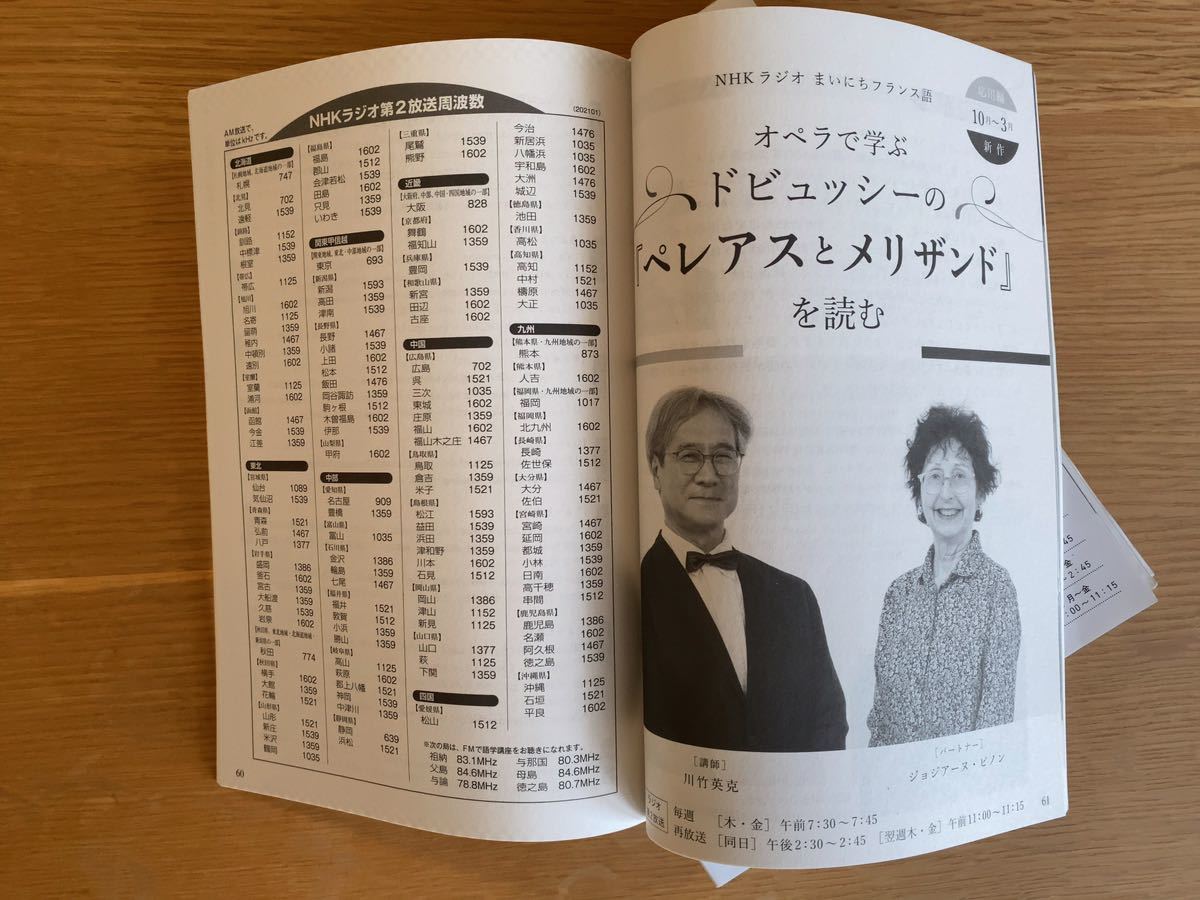 NHKラジオ第2放送周波数
(202101)
AM放送で、
単位はkHzです。
北海道
【札幌地域、北海道地域の一部】
札幌 747
【北見】
北見 702
遠軽 1539
【釧路】
釧路 1152
中標津 1539
根室 1359
【帯広】
帯広 1125
【旭川】
旭川 1602
名寄 1125
留萌 1359
稚内 1467
中頓別 1359
遠別 1602
【室蘭】
室蘭 1125
浦河 1602
【函館】
函館 1467
今金 1539
江差 1359
東北
【宮城県】
仙台 1089
気仙沼 1539
【青森県】
青森 1521
弘前 1467
八戸 1377
【岩手県】
盛岡 1386
釜石 1602
宮古 1359
大船渡 1359
久慈 1539
岩泉 1602
【秋田県、東北地域・北海道地域・
新潟県の一部】
秋田 774
【秋田県】
横手 1602
大館 1359
花輪 1521
【山形県】
山形 1521
新庄 1539
米沢 1359
鶴岡 1035
【福島県】
福島 1602
郡山 1512
会津若松 1539
田島 1602
只見 1359
いわき 1539
関東甲信越
【関東地域、東北・中部地域の一部】
東京 693
【新潟県】
新潟 1593
高田 1359
津南 1539
【長野県】
長野 1467
小諸 1539
上田 1602
松本 1512
飯田 1476
岡谷諏訪 1359
駒ヶ根 1512
木曽福島 1602
伊那 1539
【山梨県】
甲府 1602
中部
【愛知県】
名古屋 909
豊橋 1359
【富山県】
富山 1035
【石川県】
金沢 1386
輪島 1359
七尾 1467
【福井県】
福井 1521
敦賀 1512
小浜 1359
勝山 1359
【岐阜県】
高山 1125
萩原 1602
郡上八幡 1521
神岡 1539
中津川 1359
【静岡県】
静岡 639
浜松 1521
【三重県】
尾鷲 1539
熊野 1602
近畿
【大阪府、中部、中国・四国地域の一部】
大阪 828
【京都府】
舞鶴 1602
福知山 1359
【兵庫県】
豊岡 1539
【和歌山県】
新宮 1359
田辺 1602
古座 1602
中国
【広島県】
広島 702
呉 1521
三次 1035
東城 1602
庄原 1359
福山 1602
福山木之庄 1467
【鳥取県】
鳥取 1125
倉吉 1359
米子 1521
【島根県】
松江 1593
益田 1539
浜田 1359
津和野 1359
川本 1602
石見 1512
【岡山県】
岡山 1386
津山 1152
新見 1125
【山口県】
山口 1377
萩 1125
下関 1359
四国
【愛媛県】
松山 1512
今治 1476
新居浜 1035
八幡浜 1035
宇和島 1035
大洲 1476
城辺 1539
【徳島県】
池田 1359
【香川県】
高松 1035
【高知県】
高知 1152
中村 1521
檮原 1467
大正 1035
九州
【熊本県・九州地域の一部】
熊本 873
【熊本県】
人吉 1602
【福岡県・九州地域の一部】
福岡 1017
【福岡県】
北九州 1602
【長崎県】
長崎 1377
佐世保 1512
【大分県】
大分 1467
佐伯 1521
【宮崎県】
宮崎 1467
延岡 1602
都城 1359
小林 1539
日南 1602
高千穂 1359
串間 1512
【鹿児島県】
鹿児島 1386
名瀬 1602
阿久根 1467
徳之島 1539
【沖縄県】
沖縄 1125
石垣 1521
平良 1602
※次の局は、FMで語学講座をお聴きになれます。
祖納 83.1MHz 与那国 80.3MHz
父島 84.6MHz 母島 84.6MHz
与論 78.8MHz 徳之島 80.7MHz
60
NHKラジオ まいにちフランス語
応用編
10月〜3月
新作
オペラで学ぶ
ドビュッシーの
『ペレアスとメリザンド』
を読む
［講師］
川竹英克
［パートナー］
ジョジアーヌ・ピノン
ラジオ
第2放送
毎週 ［木・金］午前7:30〜7:45
再放送 ［同日］午後2:30〜2:45 ［翌週木・金］午前11:00〜11:15
61
:45
金
〜2:45
月〜金
:00〜11:15